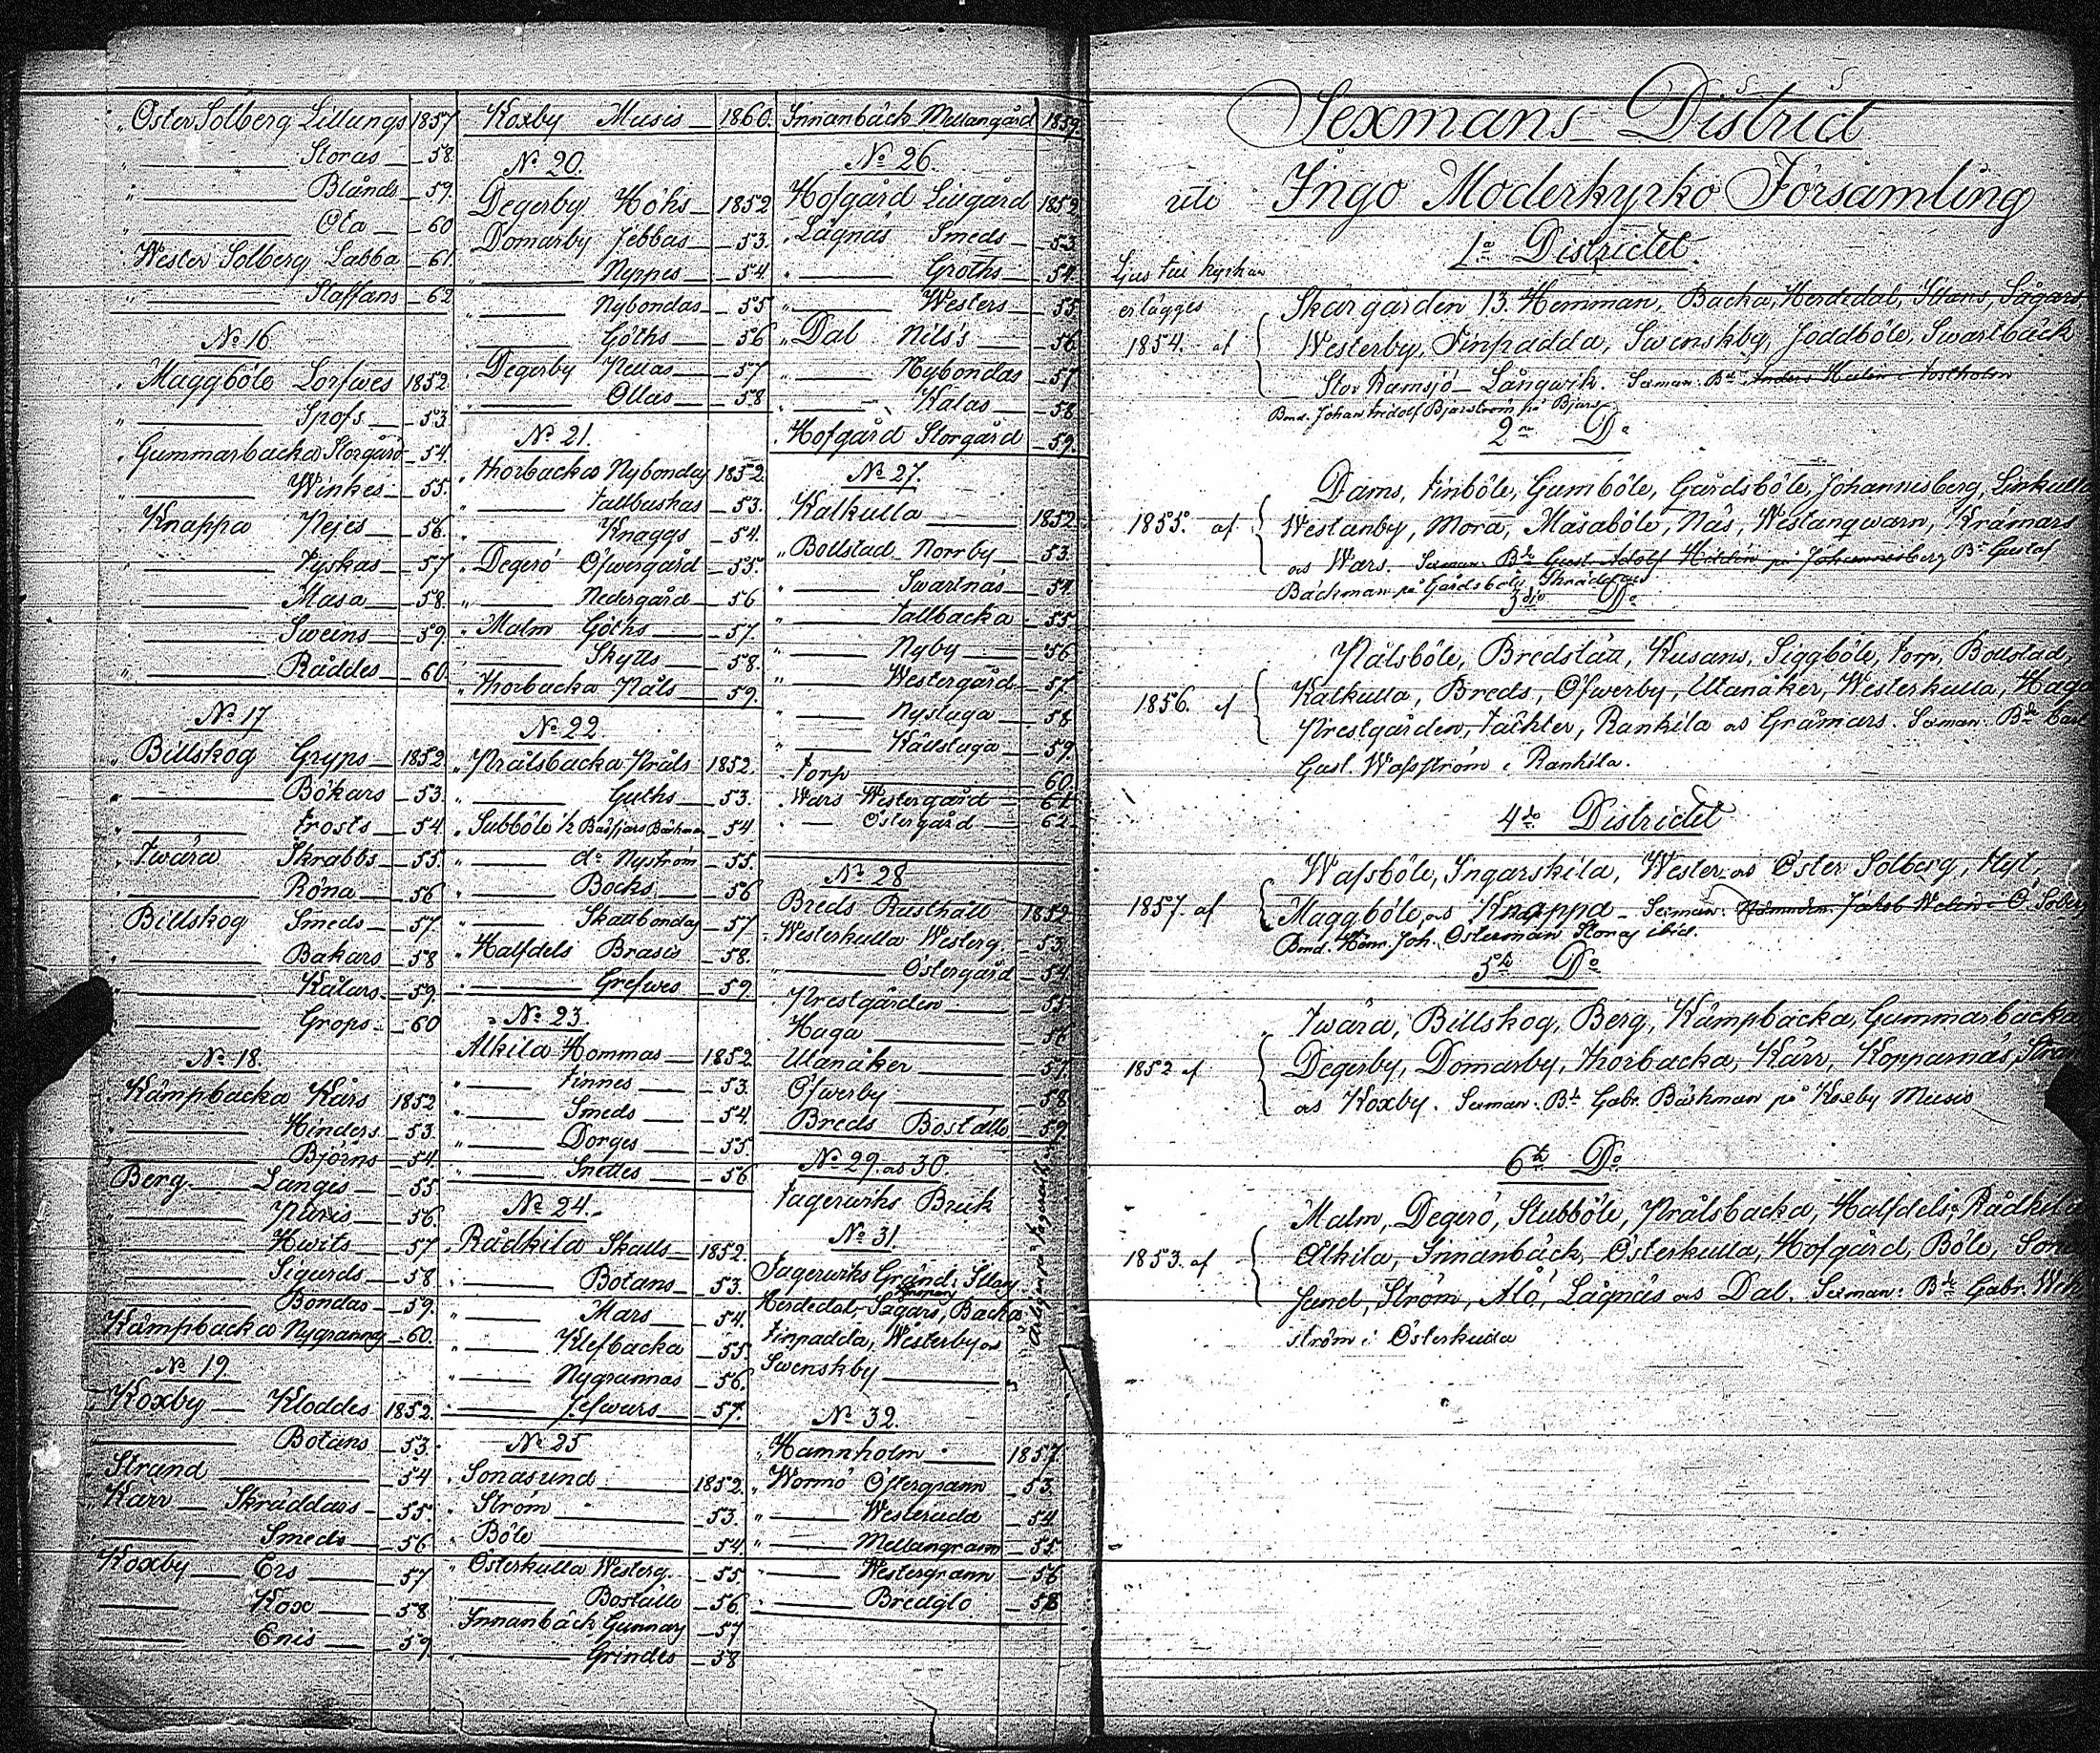 Öster Solberg Lillungs 1857
" ——— Storas — 58.
" ——— Blånds — 59.
" ——— Ola — 60
Wester Solberg Labba — 61.
" ——— Staffans — 62
No 16
Maggböle Lorfwes 1852
" ——— Spofs — 53
Gummarbacka Storgård — 54.
" ——— Winkes — 55.
Knappa Pejes — 56.
" ——— Tyskas — 57
——— Masa — 58.
" ——— Sweins — 59.
" ——— Råddes — 60
No 17
Billskog Gryps — 1852
" ——— Bökars — 53
" ——— Frosts — 54
" Twära Skrabbs — 55.
" ——— Röna — 56
Billskog Smeds — 57.
" ——— Bakars — 58
" ——— Kålars — 59.
" ——— Grops — 60
No 18.
Kämpbacka Kårs 1852
" ——— Hinders — 53.
" ——— Björns — 54.
Berg — Langes — 55
——— Påvis — 56.
——— Hwits — 57
——— Sigurds — 58
——— Bondas — 59.
Kämpbacka Nygrannas — 60.
No 19.
Koxby — Kloddes 1852.
——— Botans — 53.
Strand ——— 54
Karr — Skräddars — 55.
——— Smeds — 56
Koxby — Ers — 57
——— Kox — 58
——— Enis — 59
Koxby Musis — 1860.
No 20.
Degerby Höks — 1852
Domarby Jebbas — 53.
" ——— Nyppes — 54
" ——— Nybondas — 55
" ——— Göths — 56
Degerby Nellas — 57
" ——— Ollas — 58
No 21.
Thorbacka Nybondas 1852.
" ——— Tallbuskas — 53.
" ——— Knaggs — 54.
" Degerö Öfwergård — 55.
" ——— Nedergård — 56
" Malm Göths — 57.
" ——— Skytts — 58.
" Thorbacka Påls — 59.
No 22.
" Prålsbacka Pråls 1852.
" ——— Guths — 53.
" Subböle 1/2 Båtsfjars Bäckman — 54
" ——— do Nyström — 55.
" ——— Bocks — 56
" ——— Skattbondas — 57
" Halfdels Brasis — 58.
" ——— Grefwes — 59.
No 23.
Alkila Hommas — 1852
" ——— Finnes — 53.
" ——— Smeds — 54.
" ——— Dorges — 55.
" ——— Snettes — 56
No 24.
Rådkila Skatts — 1852.
" ——— Botans — 53.
" ——— Mars — 54.
" ——— Klefbacka — 55
" ——— Nygrannas — 56.
" ——— Jefwars — 57.
No 25
Sonasund ——— 1852.
" Ström ——— 53.
" Böle ——— 54.
" Österkulla Westerg. — 55.
" ——— Boställe — 56
Innanbäck Gunnars — 57
" ——— Grindes — 58
Innanbäck Mellangård 1859.
No 26.
Hofgård Lillgård 1852
Lågnäs Smeds — 53
" ——— Groths — 54.
" ——— Westers — 55
" Dal Nils's — 56
" ——— Nybondas — 57
" ——— Kalas — 58
Hofgård Storgård — 59.
No 27.
Kalkulla ——— 1852
" Bollstad Norrby — 53.
" ——— Swartnäs — 54
" ——— Tallbacka — 55
" ——— Nyby — 56
" ——— Westergård — 57
" ——— Nystuga — 58
" ——— Källstuga — 59.
Torp ——— 60.
Wars Westergård — 61
" — Östergård — 62
No 28
Breds Rusthåll 1852
Westerkulla Westerg. — 53.
" ——— Östergård — 54
Prestgården — 55
Haga — 56
Utanåker — 57.
Öfwerby — 58
Breds Boställe — 59
No 29 och 30.
Fagerwiks Bruk
No 31.
Fagerwiks Gränd: Illans
Herdedal, Sågars, Backa
Finpadda, Westerby och
Swenskby ———
No 32.
Hamnholm ——— 1857
" Wormö Östergrann — 53
" ——— Westerudd — 54
" ——— Mellangrann — 55
" ——— Westergrann — 56
" ——— Bredglo — 58
Sexmans District
uti Ingo Moderkyrko Församling
1a Districtet.
Ljus till kyrkan
erlägges
Skärgården 13. Hemman, Backa, Herdedal, Illans, Sågars
1854. af Westerby, Finpadda, Swenskby, Joddböle, Swartbäck
Stor Ramsjö — Långwik. Sexman: Bde Anders i Torsholm
Bond. Johan Fridolf Bjurström på Bjurs
2a Do
Dams, Finböle, Gumböle, Gårdsböle, Johannisberg, Linkulla
1855. af Westanby, Mora, Måsaböle, Näs, Westanqwarn, Krämars
och Wars. Sexman: Bde Gust. Adolf Heldén på Johannesberg Bde Gustaf
Bäckman på Gårdsböle Skräddars
3dje Do
Pålsböle, Bredslätt, Kusans, Siggböle, Torp, Bollstad,
1856. af Kalkulla, Breds, Öfwerby, Utanåker, Westerkulla, Haga
Prestgården, Täkter, Rankila och Gråmars. Sexman: Bde Carl
Gust. Wassström i Rankila.
4de Districtet
Wassböle, Ingarskila, Wester och Öster Solberg, Flyt,
1857. af Maggböle, och Knappa — Sexman: Jakob Welin i Ö. Solberg
Bond. Henr. Joh. Österman Storas ibid.
5te Do
Twära, Billskog, Berg, Kämpbacka, Gummarbacka
1852 af Degerby, Domarby, Thorbacka, Kärr, Kopparnäs, Strand
och Koxby. Sexman: Bde Gabr. Bäckman på Koxby Musis
6te Do
Malm, Degerö, Stubböle, Prålsbacka, Halfdels, Rådkila
1853. af Alkila, Innanbäck, Österkulla, Hofgård, Böle, Sona
sund, Ström, Alö, Lågnäs och Dal. Sexman: Bde Gabr. Wik
ström i Österkulla